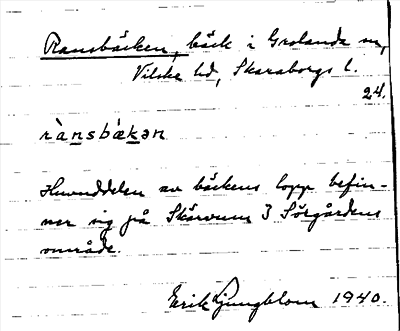 Ransbäcken, bäck i Grolanda sn,
Vilske hd, Skaraborgs l.
24.
rànsbækən
Huvuddelen av bäckens lopp befin-
ner sig på Skärvum 3 Sörgårdens
område
Erik Ljungblom 1940.